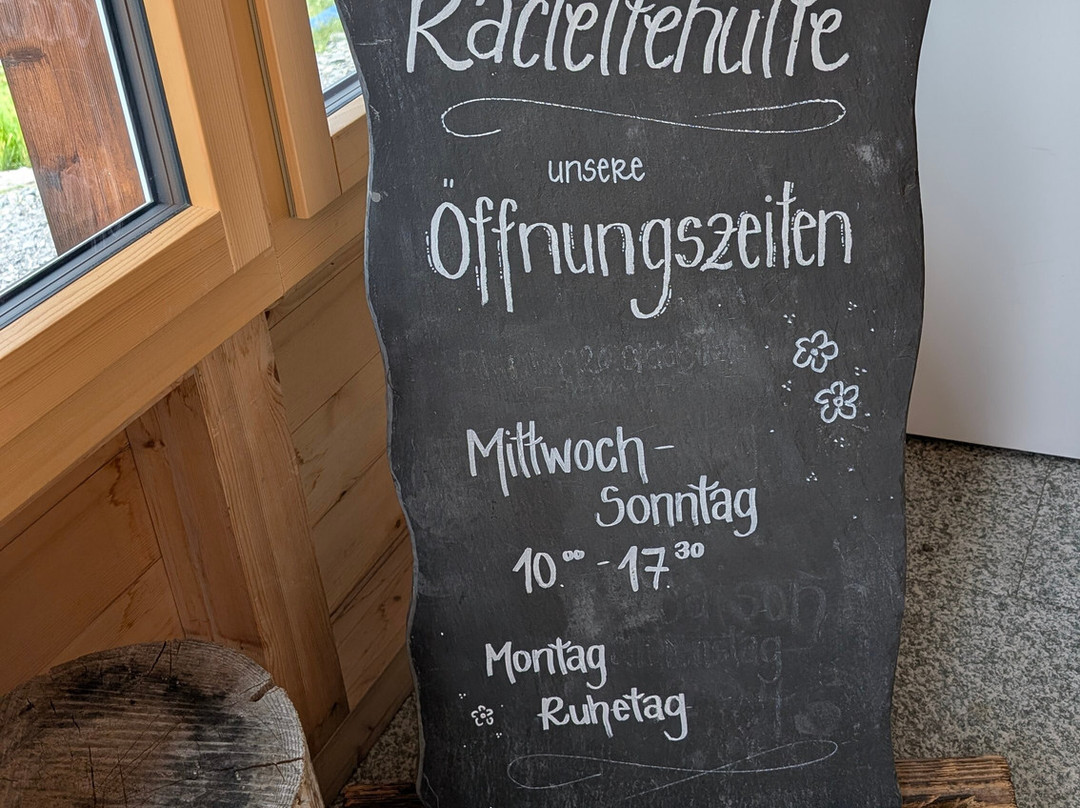 Raclettehütte
unsere
Öffnungszeiten
Mittwoch -
Sonntag
10.00 - 17.30
Montag
Ruhetag